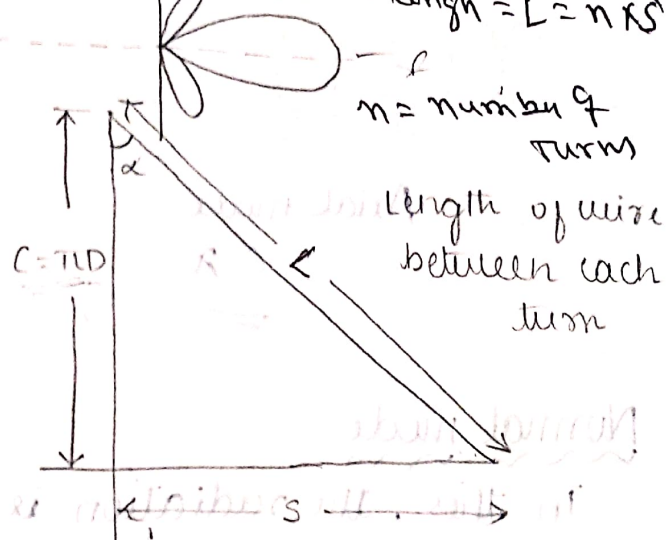 Length = L = n x S
n = number of
turns
α
Length of wire
C = πD
L
between each
turn
S